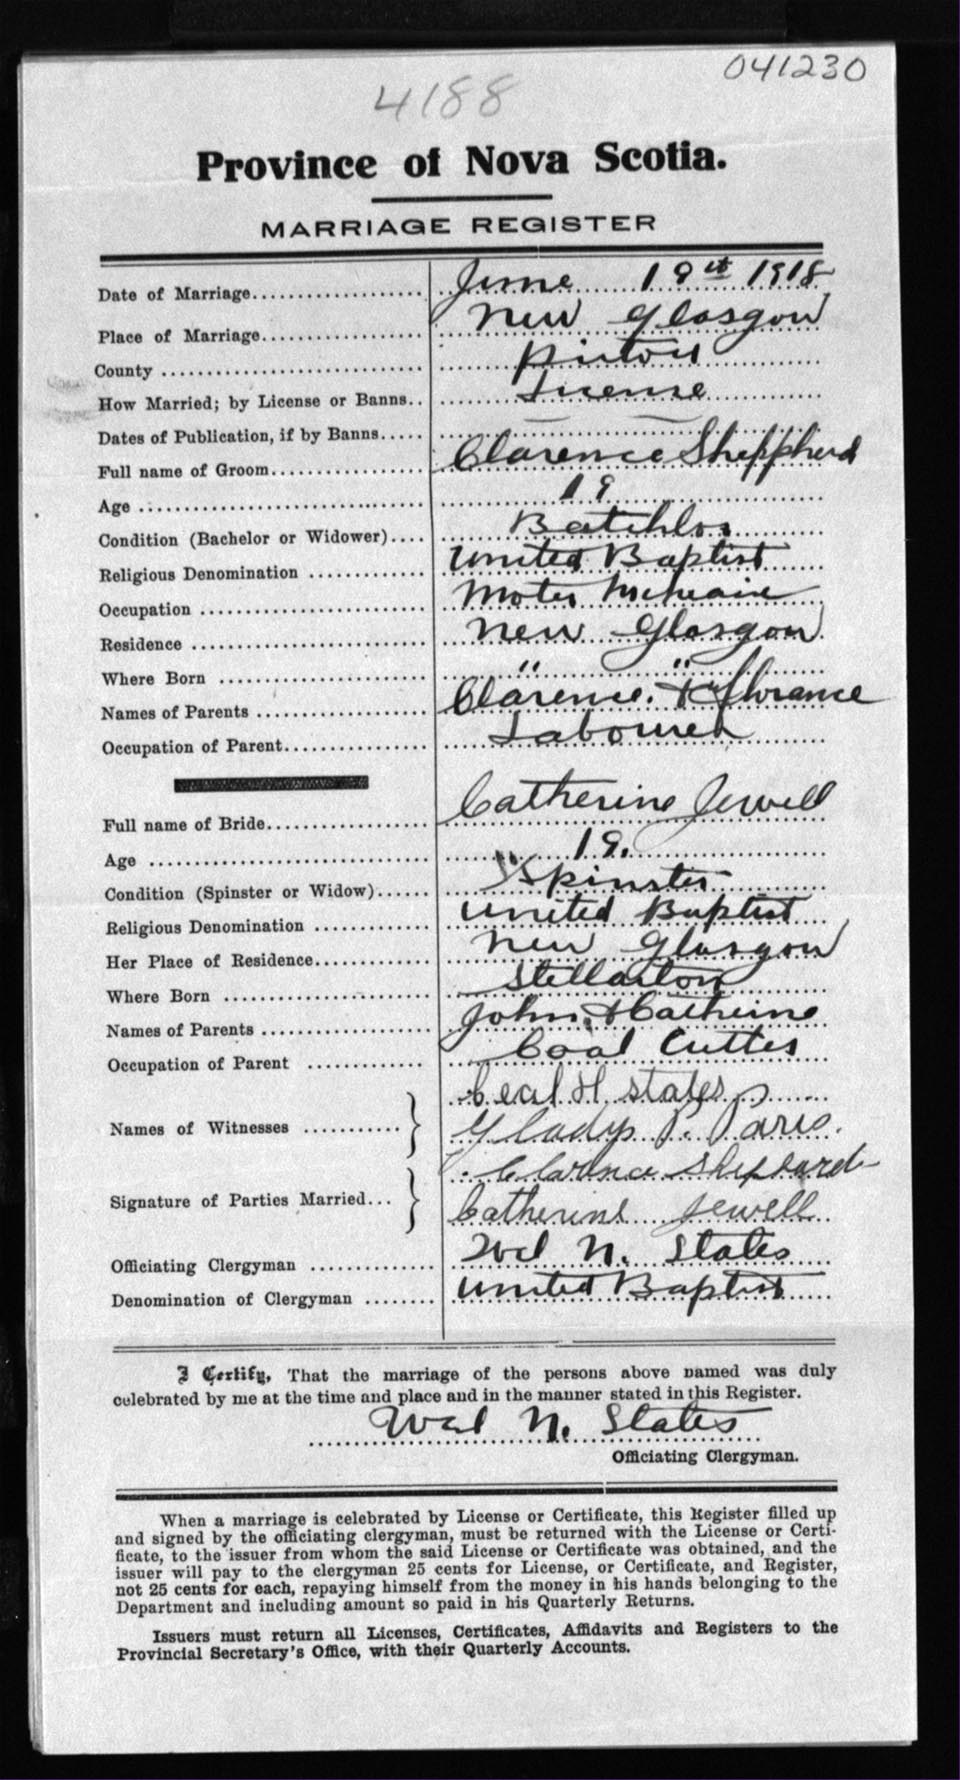 041230
4188
Province of Nova Scotia.
MARRIAGE REGISTER
Date of Marriage June 19th 1918
Place of Marriage New Glasgow
County Pictou
How Married; by License or Banns.. License
Dates of Publication, if by Banns —
Full name of Groom Clarence Sheppherd
Age 19
Condition (Bachelor or Widower) Batchlor
Religious Denomination United Baptist
Occupation Moter
Residence New Glasgow
Where Born " "
Names of Parents Clarence & Florance
Occupation of Parent Labourer
Full name of Bride Catherine Jewell
Age 19.
Condition (Spinster or Widow) Spinster
Religious Denomination United Baptist
Her Place of Residence New Glasgow
Where Born Stellarton
Names of Parents John & Catherine
Occupation of Parent Coal Cutter
Names of Witnesses Ceal H States
Gladys P. Paris.
Signature of Parties Married... Clarence Sheppard
Catherine Jewell
Officiating Clergyman N. States
Denomination of Clergyman United Baptist
I Certify, That the marriage of the persons above named was duly
celebrated by me at the time and place and in the manner stated in this Register.
N. States
Officiating Clergyman.
When a marriage is celebrated by License or Certificate, this Register filled up
and signed by the officiating clergyman, must be returned with the License or Certi-
ficate, to the issuer from whom the said License or Certificate was obtained, and the
issuer will pay to the clergyman 25 cents for License, or Certificate, and Register,
not 25 cents for each, repaying himself from the money in his hands belonging to the
Department and including amount so paid in his Quarterly Returns.
Issuers must return all Licenses, Certificates, Affidavits and Registers to the
Provincial Secretary's Office, with their Quarterly Accounts.